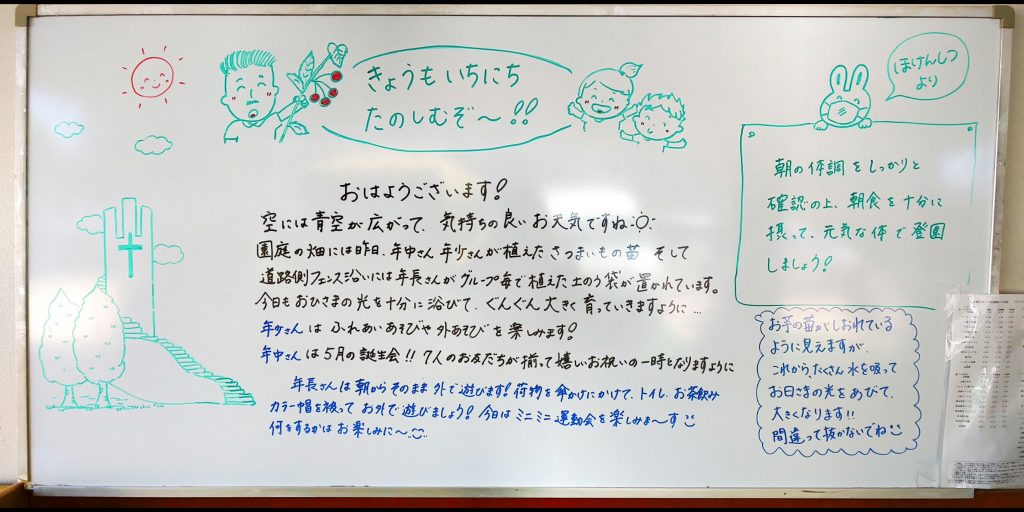 きょうもいちにち
たのしむぞ〜!!
ほけんしつ
より
おはようございます!
空には青空が広がって、気持ちの良いお天気ですね
園庭の畑には昨日、年中さん年少さんが植えたさつまいもの苗 そして
道路側フェンス沿いには年長さんがグループ毎で植えた土のう袋が置かれています。
今日もおひさまの光を十分に浴びて、ぐんぐん大きく育っていきますように…
年少さんは ふれあいあそびや外あそびを楽しみます!
年中さんは5月の誕生会!! 7人のお友だちが揃って嬉しいお祝いの一時となりますように
年長さんは朝からそのまま外で遊びます!荷物を傘かけにかけて、トイレ、お茶飲み
カラー帽を被ってお外で遊びましょう!今日はミニミニ運動会を楽しみま〜す
何をするかはお楽しみに〜
朝の体調をしっかりと
確認の上、朝食を十分に
摂って、元気な体で登園
しましょう!
お芋の苗がしおれている
ように見えますが、
これからたくさん水を吸って
お日さまの光をあびて、
大きくなります!!
間違って抜かないでね